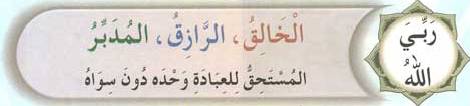 رَبِّيَ
اللهُ
الْخَالِقُ، الرَّازِقُ، المُدَبِّرُ
المُسْتَحِقُّ لِلعِبَادَةِ وَحْدَهُ دُونَ سِوَاهُ